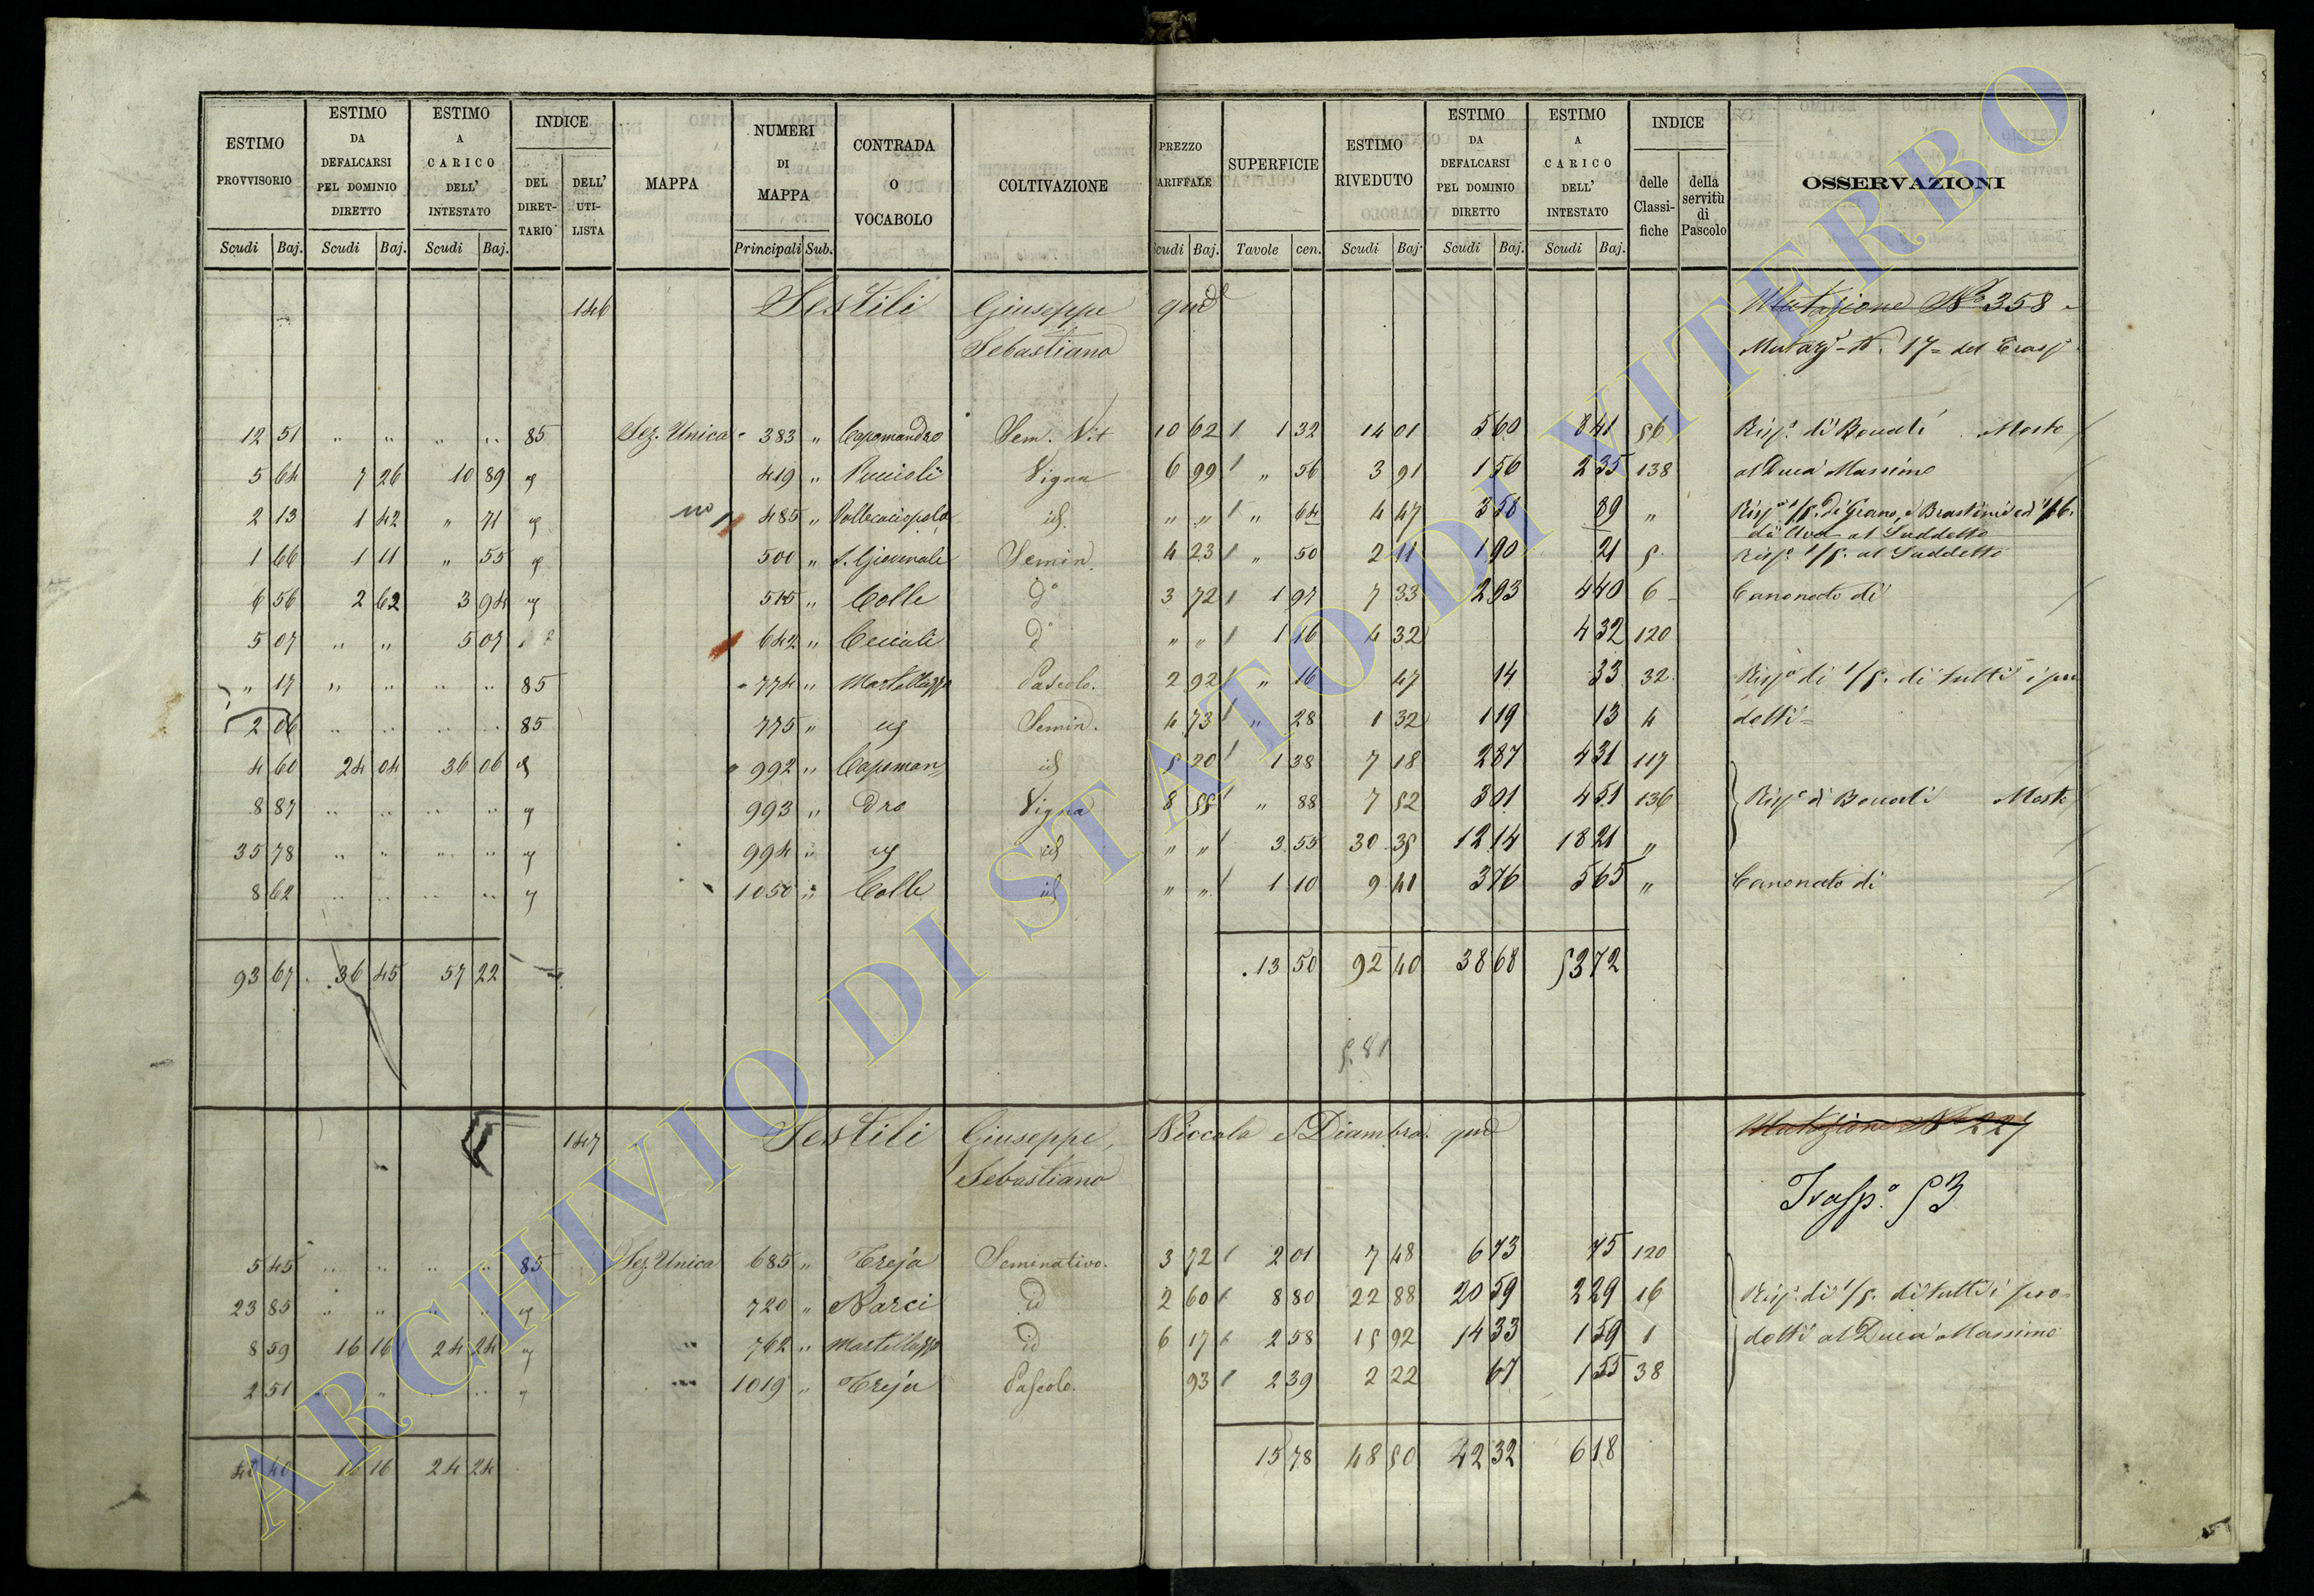 ESTIMO PROVVISORIO | ESTIMO DA DEFALCARSI PEL DOMINIO DIRETTO | ESTIMO A CARICO DELL' INTESTATO | INDICE DEL DIRET-TARIO | DELL' UTI-LISTA | MAPPA | NUMERI DI MAPPA | CONTRADA O VOCABOLO | COLTIVAZIONE | PREZZO ARIFFALE | SUPERFICIE | ESTIMO RIVEDUTO | ESTIMO DA DEFALCARSI PEL DOMINIO DIRETTO | ESTIMO A CARICO DELL' INTESTATO | INDICE delle Classi-fiche | della servitù di Pascolo | OSSERVAZIONI
Scudi Baj. | Scudi Baj. | Scudi Baj. | Principali Sub. | cudi Baj. | Tavole cen. | Scudi Baj. | Scudi Baj. | Scudi Baj.
146 Sestili Giuseppe qud Mutazione No 358
Sebastiano Mutazi N. 17 = del Trasp
12 51 " " " " 85 Sez. Unica 383 " Capomandro Sem. Vit 10 62 1 32 14 01 5 60 8 41 56 Risp. di Bocali Mosto
5 64 7 26 10 89 " 419 " Vigna 6 99 " 56 3 91 1 56 2 35 138 al Duca Massimo
2 13 1 42 " 71 " no 485 " id " " " 64 4 47 3 58 89 " Risp. 1/5. di Grano,
di Uva al Suddetto
1 66 1 11 " 55 " 500 " S. Giovenale Semin. 4 23 " 50 2 11 1 90 21 5 Risp. 1/5. al Suddetto
6 56 2 62 3 94 " 515 " Colle Do 3 72 1 97 7 33 2 93 4 40 6 Canonato di
5 07 " " 5 07 642 " Do " " 1 16 4 32 4 32 120
" 17 " " " " 85 774 " Martellazzo Pascolo. 2 92 " 16 47 14 33 32 Risp. di 1/5. di tutti i pro
2 06 " " " " 85 775 " Semin. 4 73 " 28 1 32 1 19 13 4 dotti =
4 60 24 04 36 06 992 " Capoman id 5 20 1 38 7 18 2 87 4 31 117
8 87 " " " " 993 " dro Vigna 8 55 " 88 7 52 3 01 4 51 136 Risp. di Bocali Mosto
35 78 " " " " 994 " id " " 3 55 30 35 12 14 18 21 "
8 62 " " " " 1050 " Colle id " " 1 10 9 41 3 76 5 65 " Canonato di
93 67 36 45 57 22 13 50 92 40 38 68 53 72
5.81
147 Sestili Giuseppe, Niccola e Diambra qud Mutazione No 227
Sebastiano
Trasp.o 53
5 45 " " " " 85 Sez. Unica 685 " Treja Seminativo. 3 72 2 01 7 48 6 73 75 120
23 85 " " " " 720 " Narci id 2 60 8 80 22 88 20 59 2 29 16 Risp. di 1/5. di tutti i pro=
8 59 16 16 24 24 762 " Martellazzo id 6 17 2 58 15 92 14 33 1 59 1 dotti al Duca Massimo
2 51 " " " " 1019 " Treja Pascolo. 93 2 39 2 22 67 1 55 38
40 40 16 16 24 24 15 78 48 50 42 32 6 18
ARCHIVIO DI STATO DI VITERBO